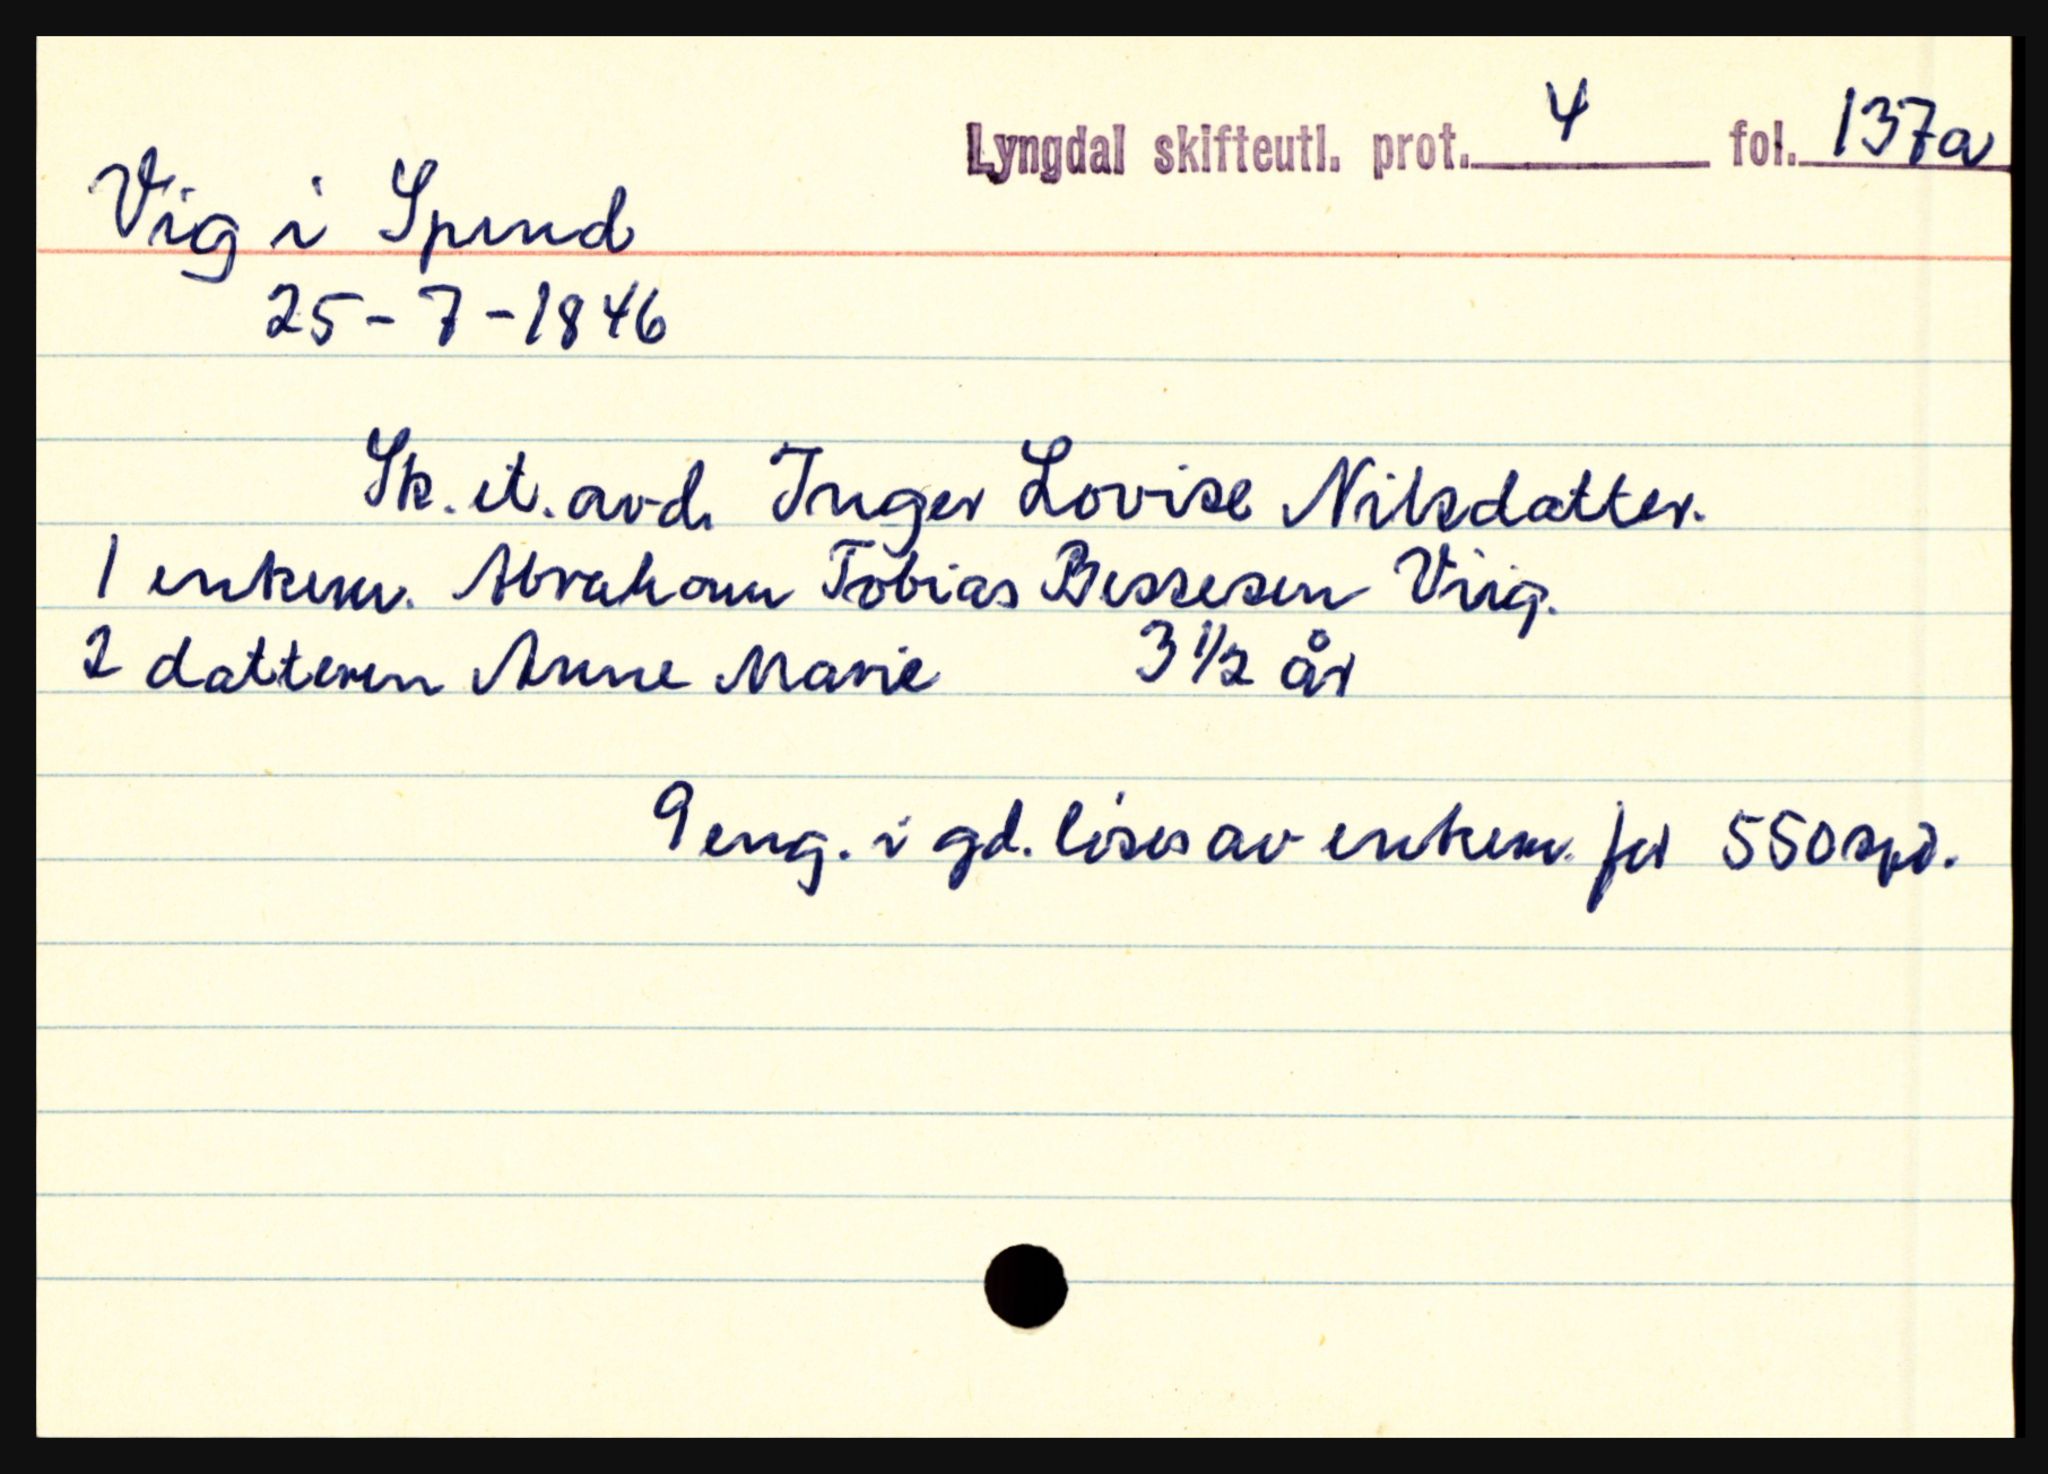 Lyngdal skifteutl. prot. 4 fol. 137a
Vig i Spind
25-7-1846
Sk. et. avd. Inger Lovise Nilsdatter.
1 enkem. Abraham Tobias Bessesen Viig.
2 datteren Anne Marie 3 1/2 år
9 eng. i gd. löses av enkem. for 550 spd.